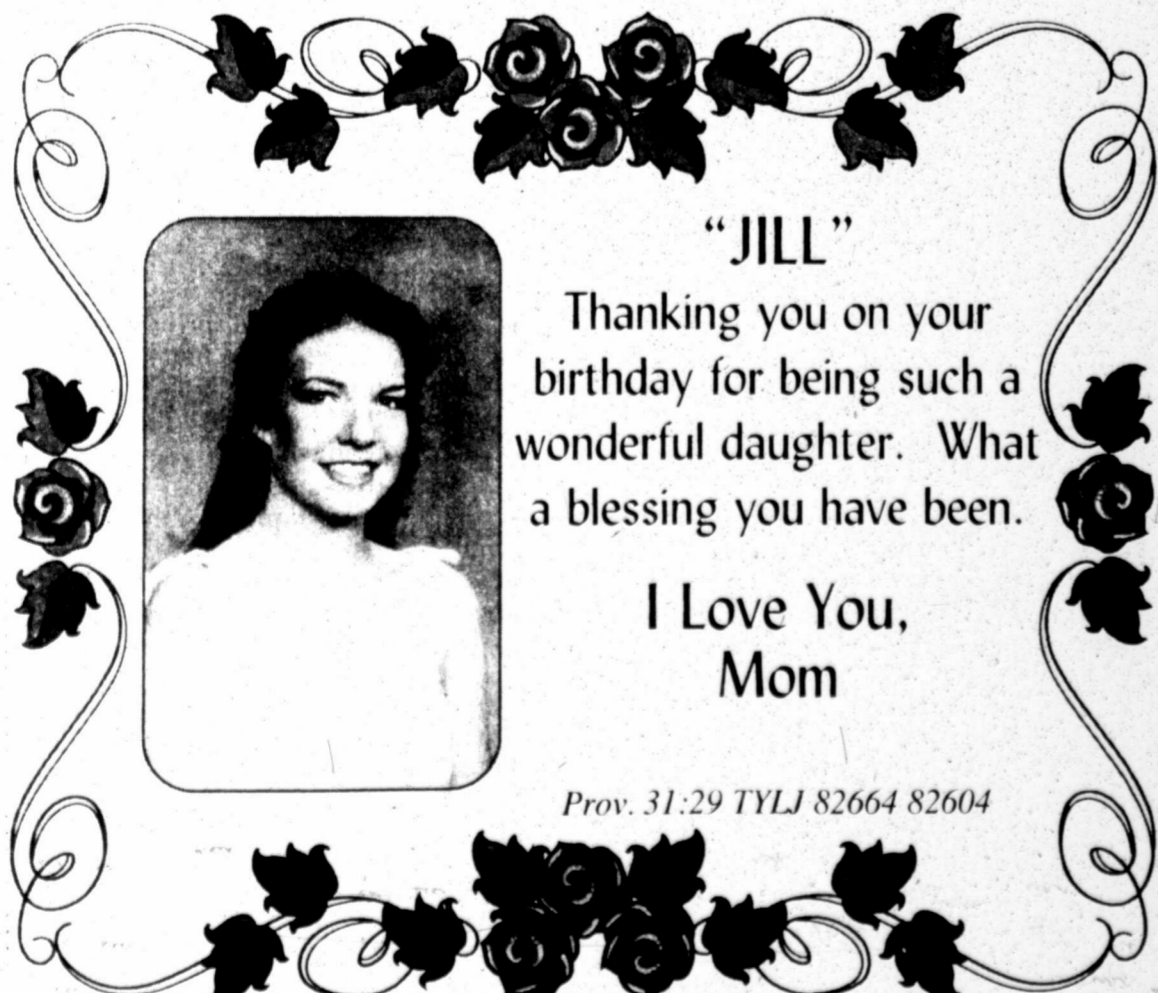 “JILL”
Thanking you on your
birthday for being such a
wonderful daughter.  What
a blessing you have been.
I Love You,
Mom
Prov. 31:29 TYLJ 82664 82604